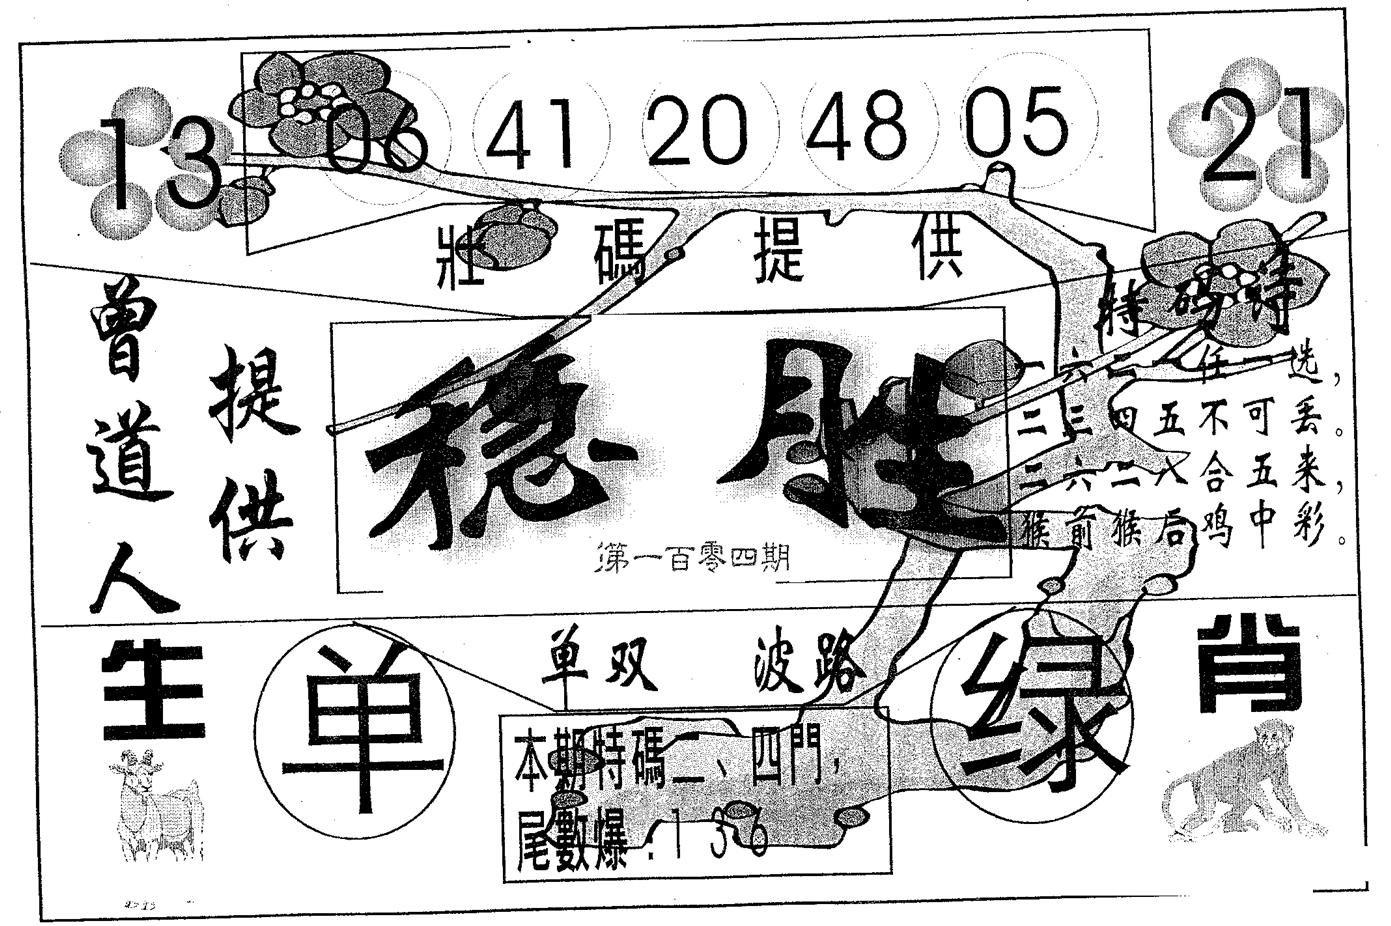 13 06 41 20 48 05 21
壯碼提供
曾道人
提供
稳胜
第一百零四期
特码诗
一六二一任一选，
二三四五不可丢。
二六二八合五来，
猴前猴后鸡中彩。
生肖
单双 波路
单
绿
本期特碼二、四門，
尾數爆:136